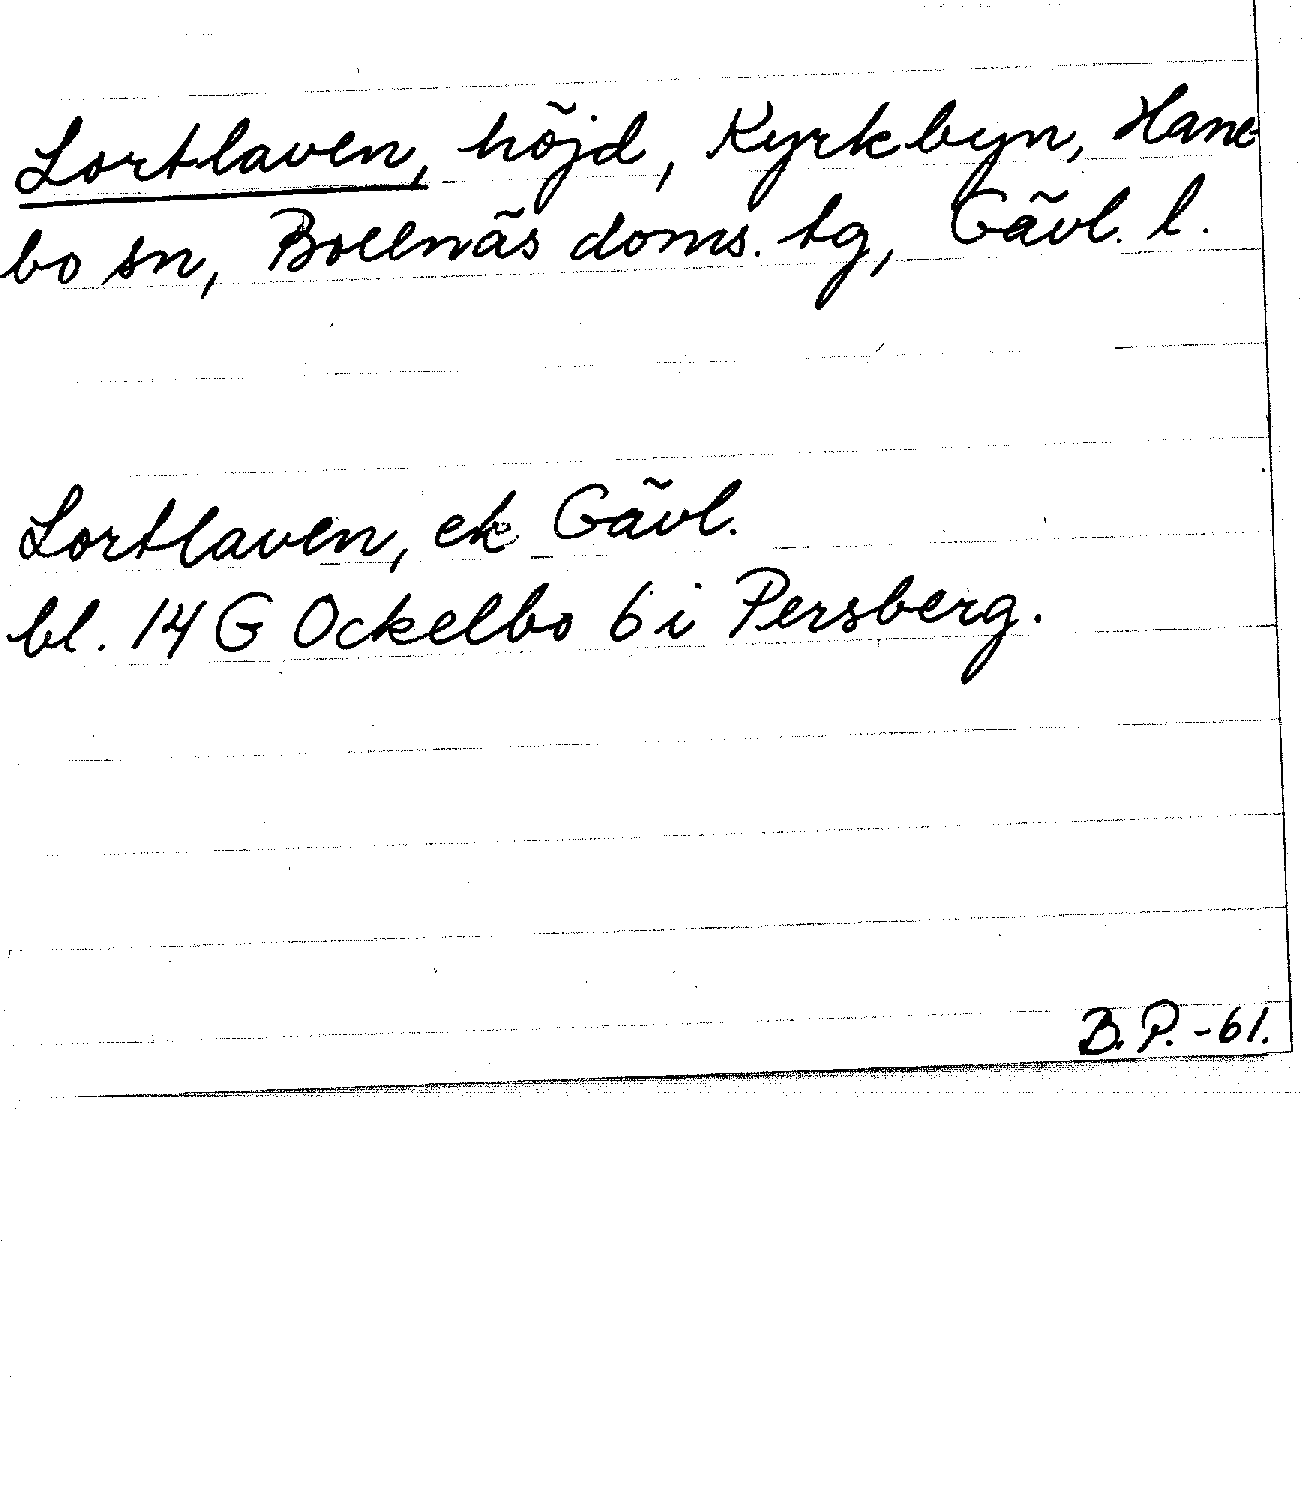 Lortlaven, höjd, Kyrkbyn, Hane
bo sn, Bollnäs doms. tg, Gävl. l.
Lortlaven, ek Gävl.
bl. 14 G Ockelbo 6 i Persberg.
B.P.-61.